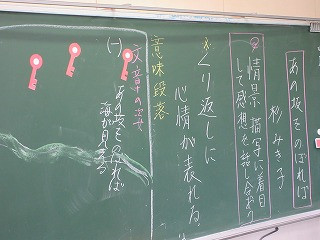 あの坂をのぼれば
杉 みき子
情景描写に着目
して感想を話し合おう
くり返しに
心情が表れる。
意味段落
文章の
(一)
あの坂をのぼれば
海が見える